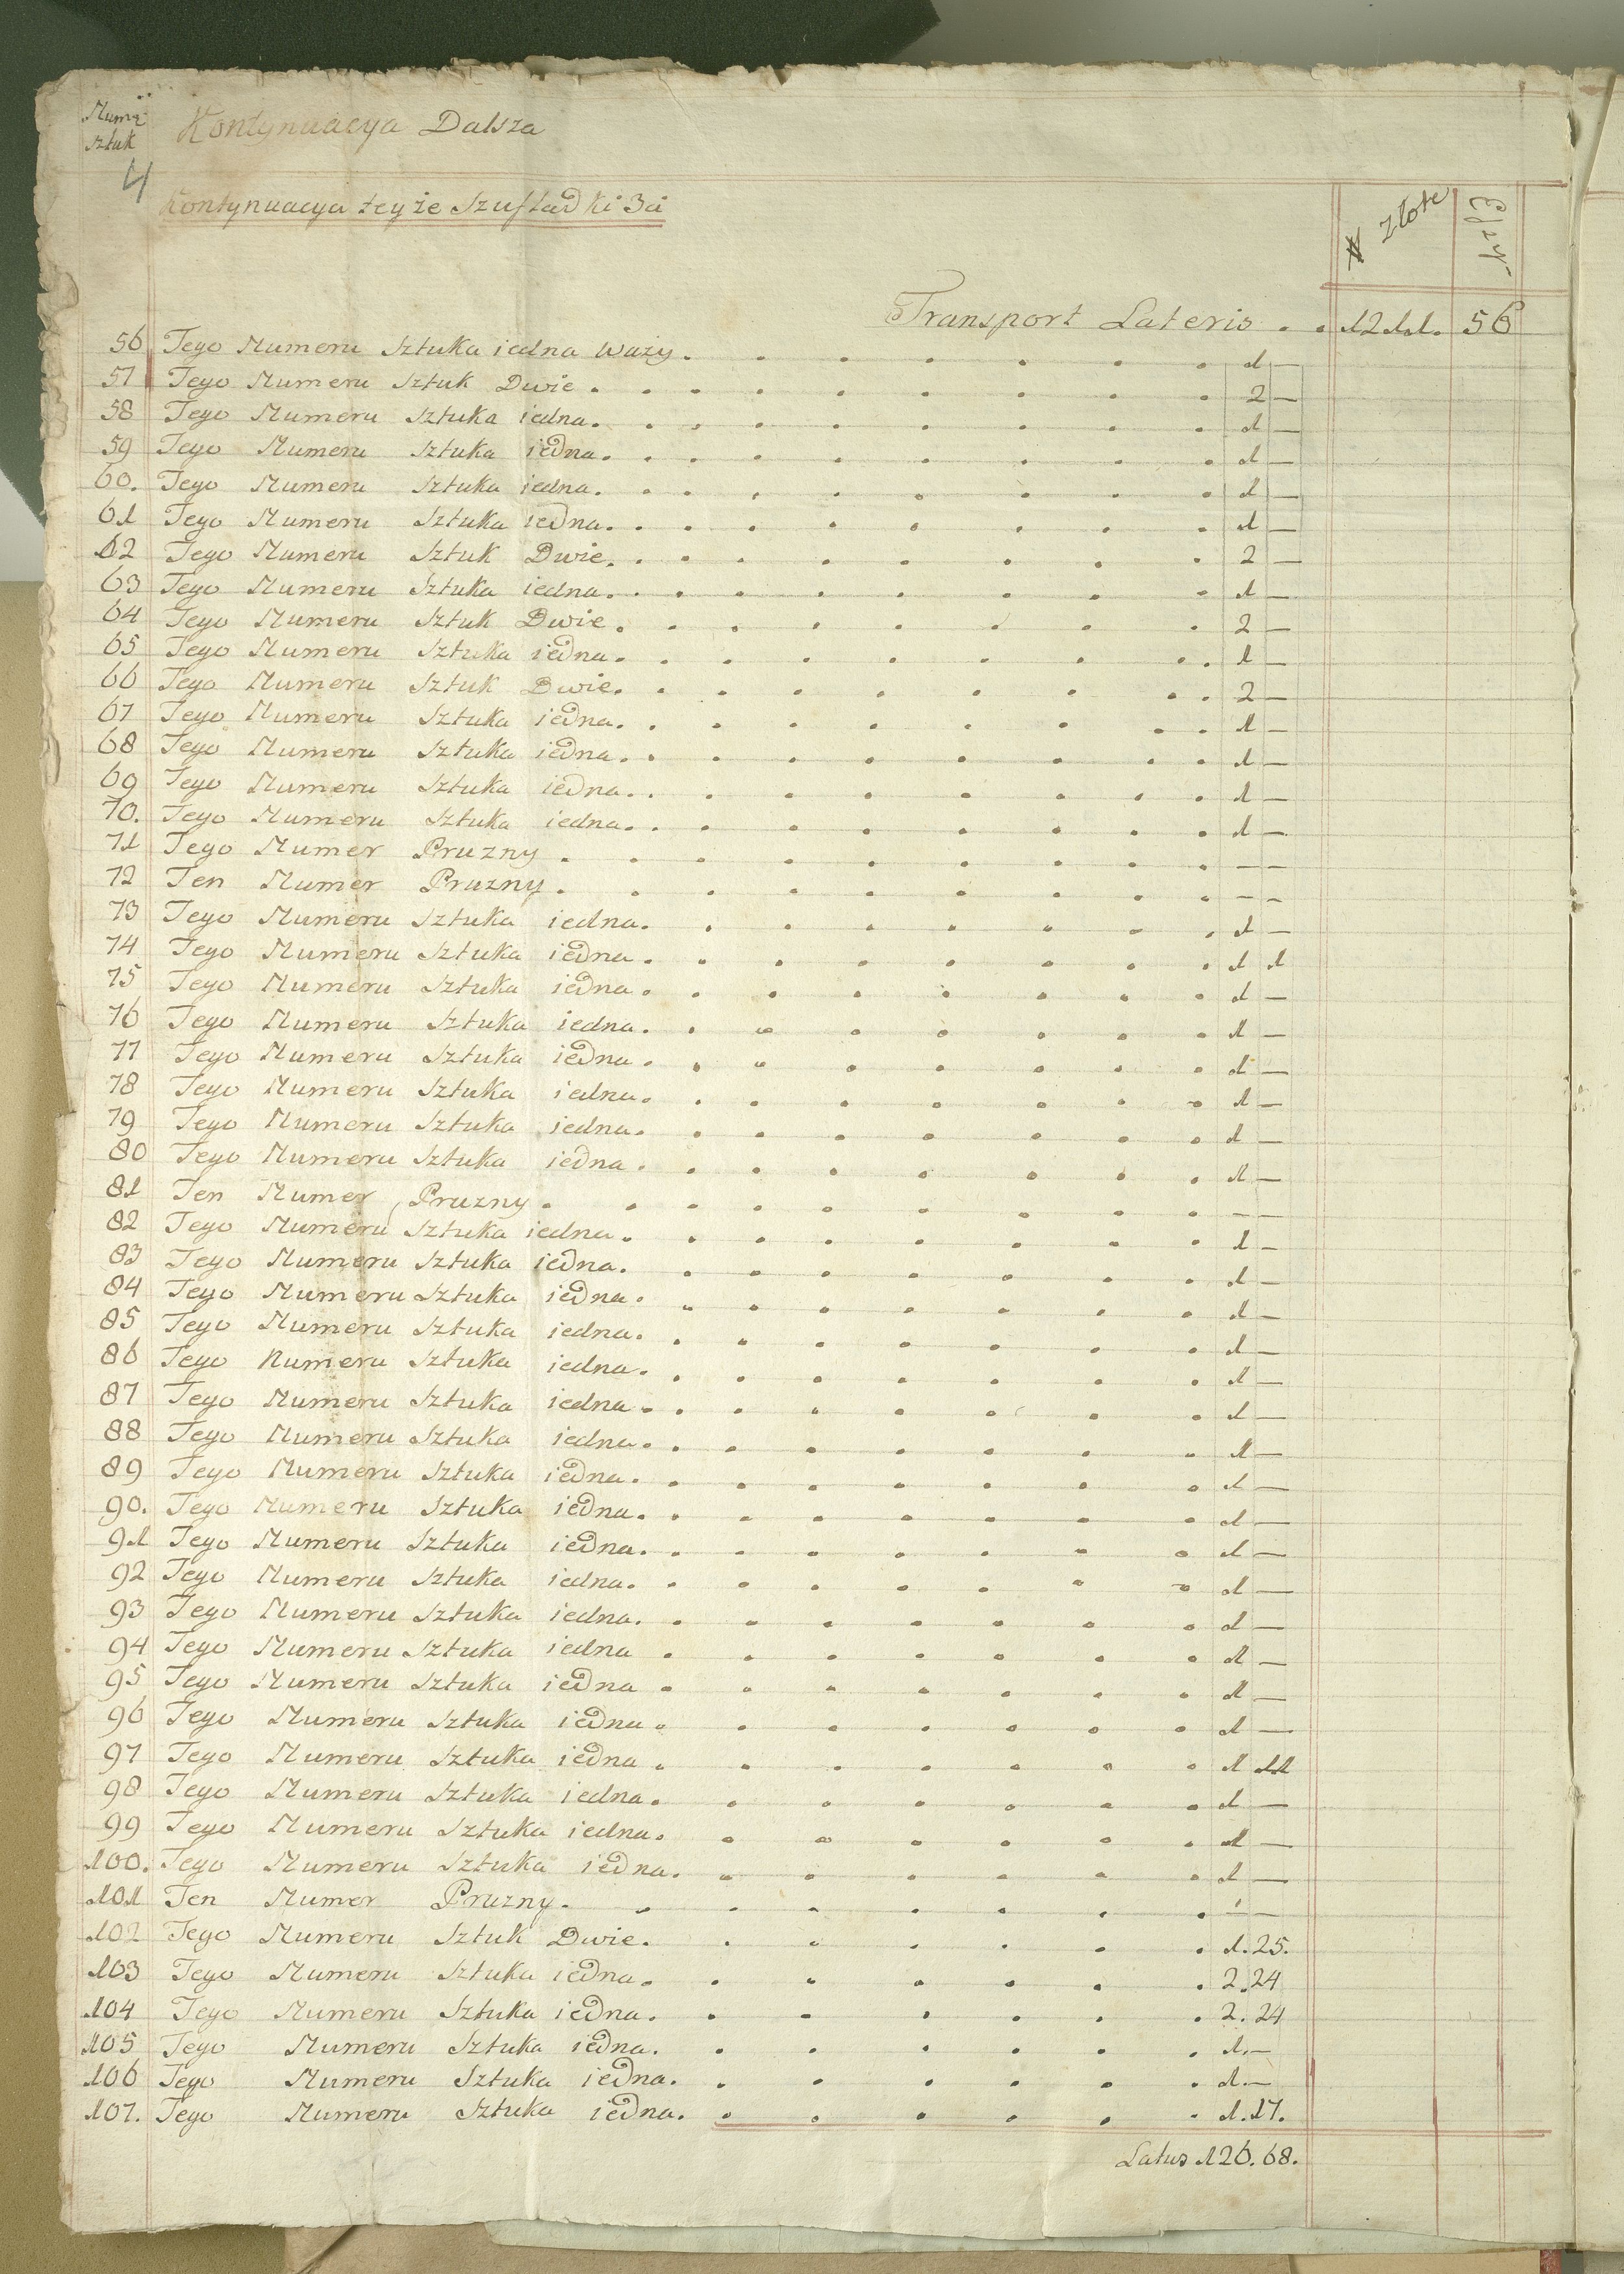 Nume
Sztuk
Kontynuacya Dalsza
4
Kontynuacya teyże Szufladki 3ci
# Złote
Transport Lateris . . 121.1. 56
56 Tego Numeru Sztuka iedna Waży . 1 —
57 Tego Numeru Sztuk Dwie . 2 —
58 Tego Numeru Sztuka iedna . 1 —
59 Tego Numeru Sztuka iedna . 1 —
60. Tego Numeru Sztuka iedna . 1 —
61 Tego Numeru Sztuka iedna . 1 —
62 Tego Numeru Sztuk Dwie . 2 —
63 Tego Numeru Sztuka iedna . 1 —
64 Tego Numeru Sztuk Dwie . 2 —
65 Tego Numeru Sztuka iedna . 1 —
66 Tego Numeru Sztuk Dwie . 2 —
67 Tego Numeru Sztuka iedna . 1 —
68 Tego Numeru Sztuka iedna . 1 —
69 Tego Numeru Sztuka iedna . 1 —
70. Tego Numeru Sztuka iedna . 1 —
71 Tego Numer Pruzny . — —
72 Ten Numer Pruzny . — —
73 Tego Numeru Sztuka iedna . 1 —
74 Tego Numeru Sztuka iedna . 1 1
75 Tego Numeru Sztuka iedna . 1 —
76 Tego Numeru Sztuka iedna . 1 —
77 Tego Numeru Sztuka iedna . 1 —
78 Tego Numeru Sztuka iedna . 1 —
79 Tego Numeru Sztuka iedna . 1 —
80 Tego Numeru Sztuka iedna . 1 —
81 Ten Numer Pruzny . — —
82 Tego Numeru Sztuka iedna . 1 —
83 Tego Numeru Sztuka iedna . 1 —
84 Tego Numeru Sztuka iedna . 1 —
85 Tego Numeru Sztuka iedna . 1 —
86 Tego Numeru Sztuka iedna . 1 —
87 Tego Numeru Sztuka iedna . 1 —
88 Tego Numeru Sztuka iedna . 1 —
89 Tego Numeru Sztuka iedna . 1 —
90. Tego Numeru Sztuka iedna . 1 —
91 Tego Numeru Sztuka iedna . 1 —
92 Tego Numeru Sztuka iedna . 1 —
93 Tego Numeru Sztuka iedna . 1 —
94 Tego Numeru Sztuka iedna . 1 —
95 Tego Numeru Sztuka iedna . 1 —
96 Tego Numeru Sztuka iedna . 1 —
97 Tego Numeru Sztuka iedna . 1 11
98 Tego Numeru Sztuka iedna . 1 —
99 Tego Numeru Sztuka iedna . 1 —
100. Tego Numeru Sztuka iedna . 1 —
101 Ten Numer Pruzny . — —
102 Tego Numeru Sztuk Dwie . 1. 25.
103 Tego Numeru Sztuka iedna . 2. 24
104 Tego Numeru Sztuka iedna . 2. 24
105 Tego Numeru Sztuka iedna . 1. —
106 Tego Numeru Sztuka iedna . 1. —
107. Tego Numeru Sztuka iedna . 1. 17.
Latus 126. 68.